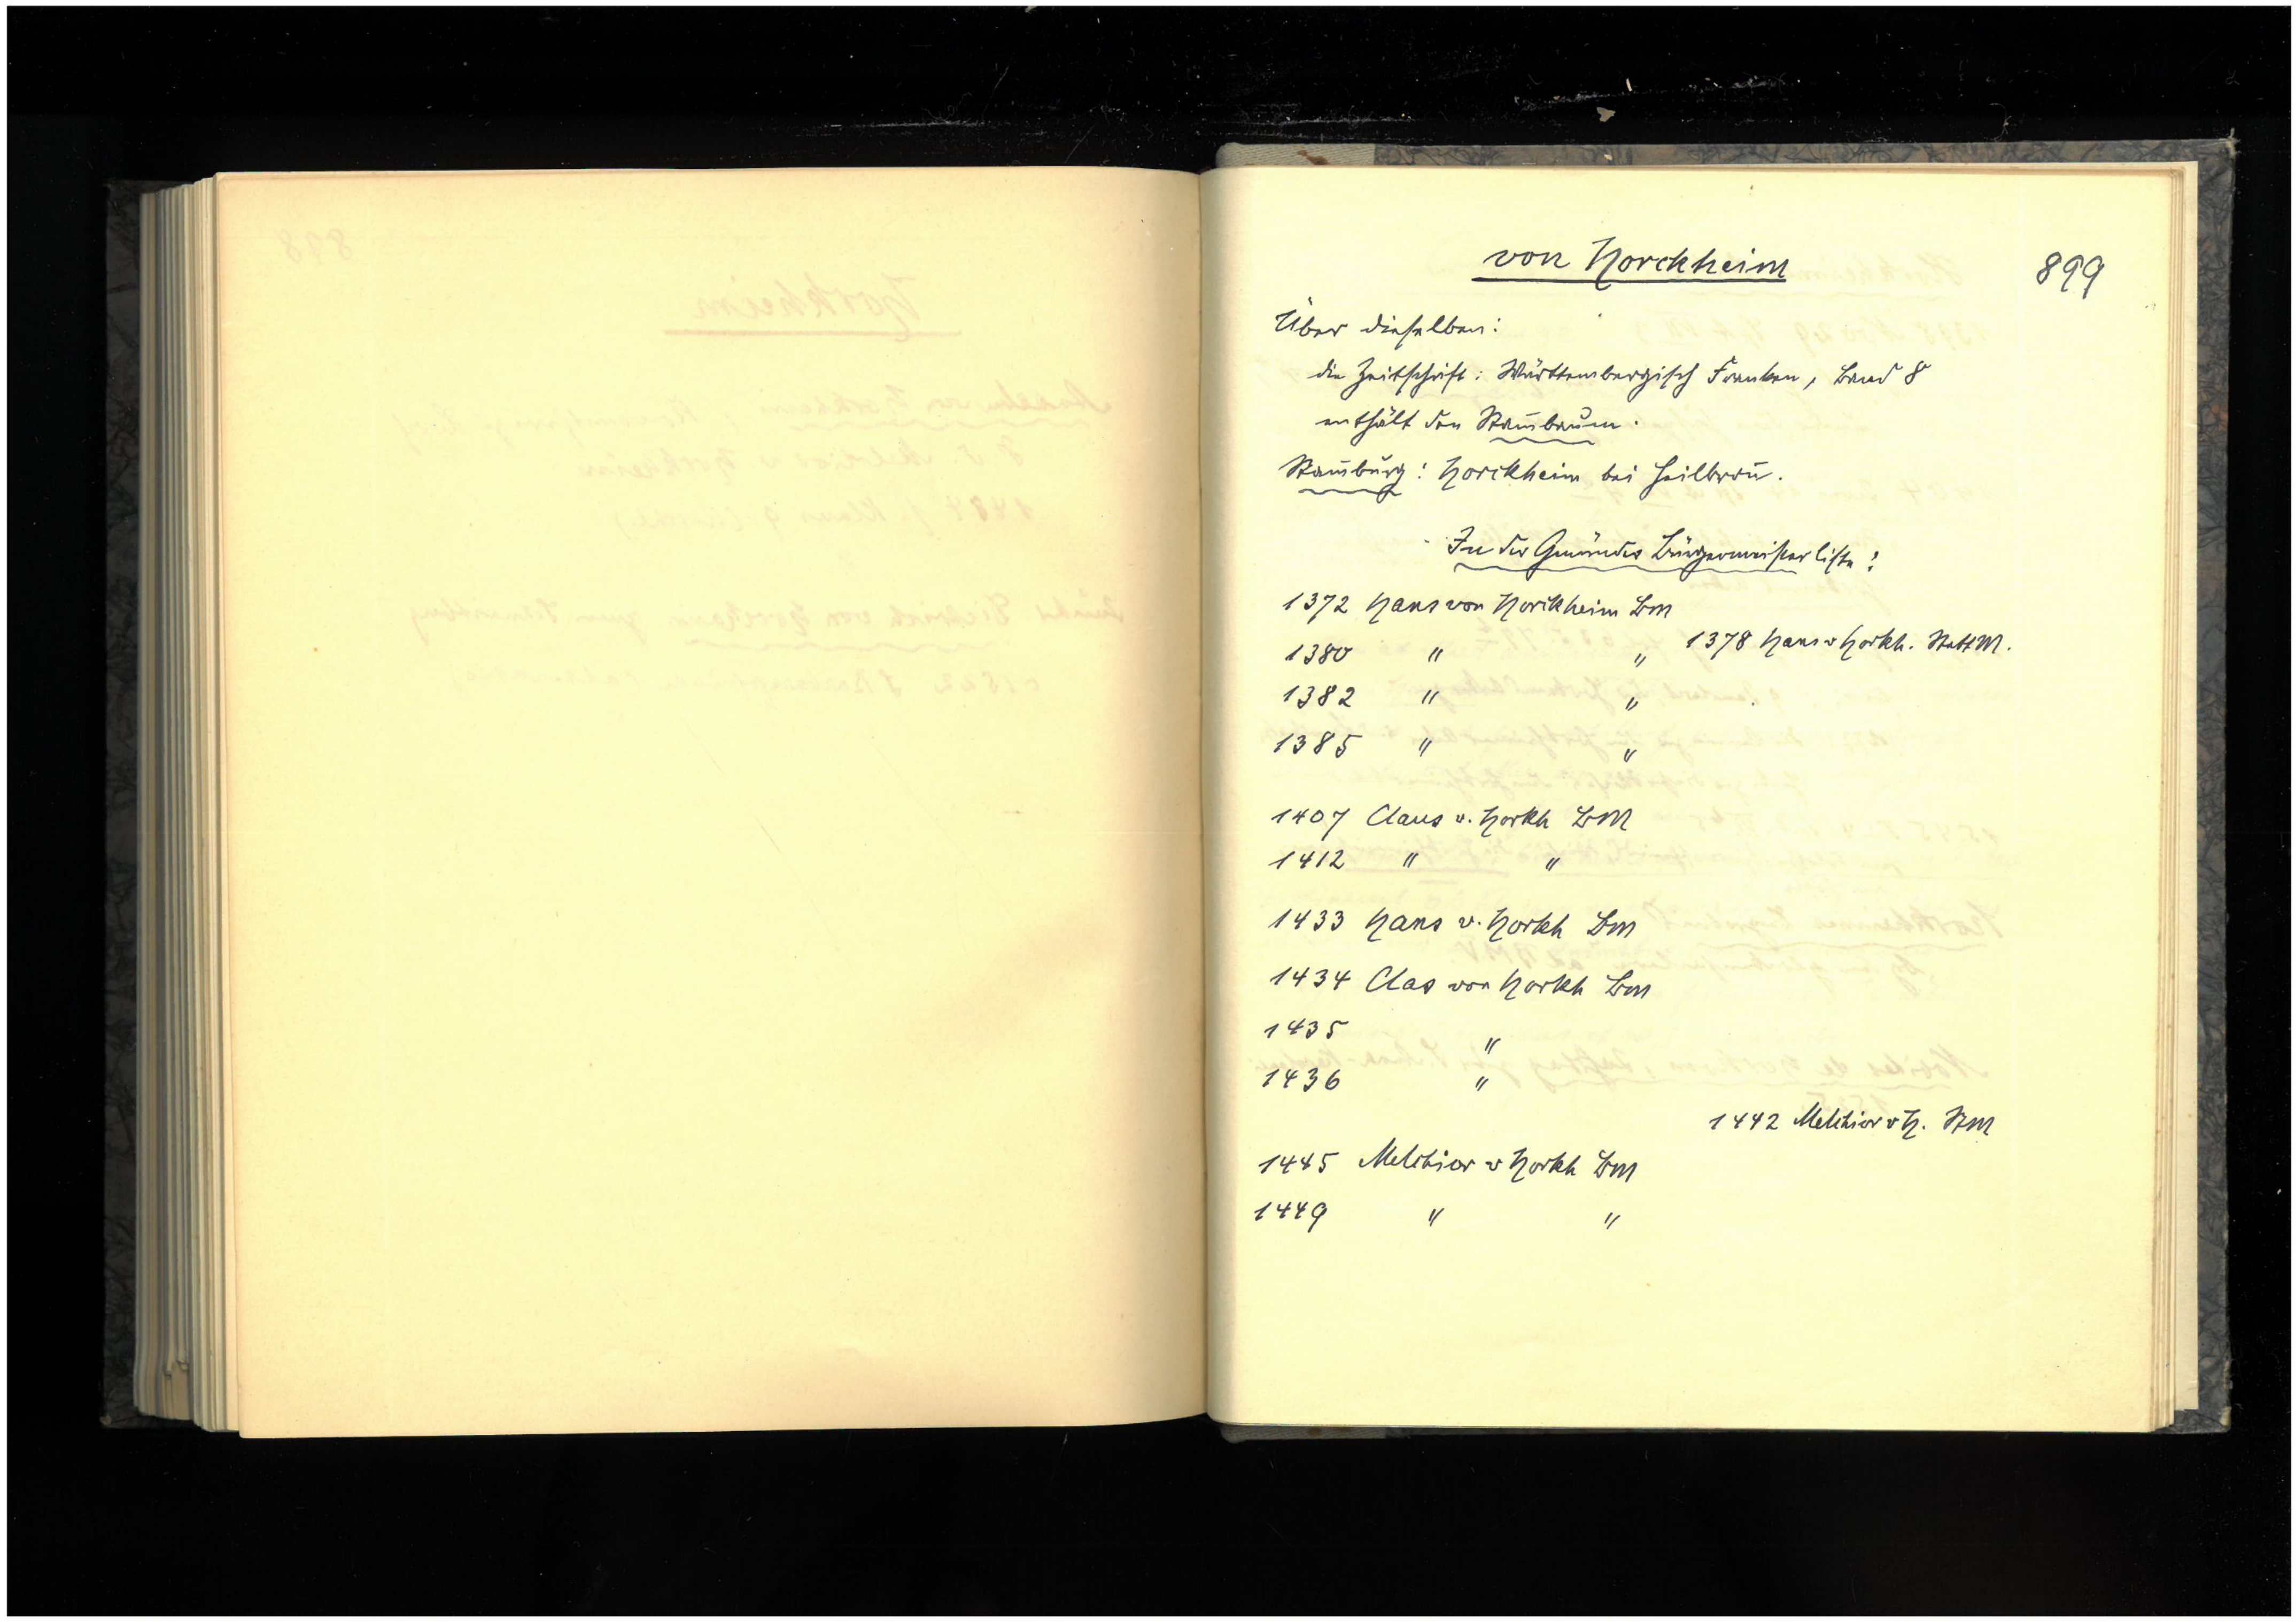 von Horckheim
899
Über dieselben:
die Zeitschrift: Württembergisch Franken, Band 8
enthält den Stam̅baum.
Stam̅burg: Horckheim bei Heilbron̅.
In der Gmünder Bürgermeisterliste:
1372 Hans von Horckheim BM
1378 Hans v Horkh. StattM.
1380 " "
1382 " "
1385 " "
1407 Claus v. Horkh BM
1412 " "
1433 Hans v. Horkh BM
1434 Clas von Horkh BM
1435 "
1436 "
1442 Melchior v H. StM
1445 Melchior v Horkh BM
1449 " "